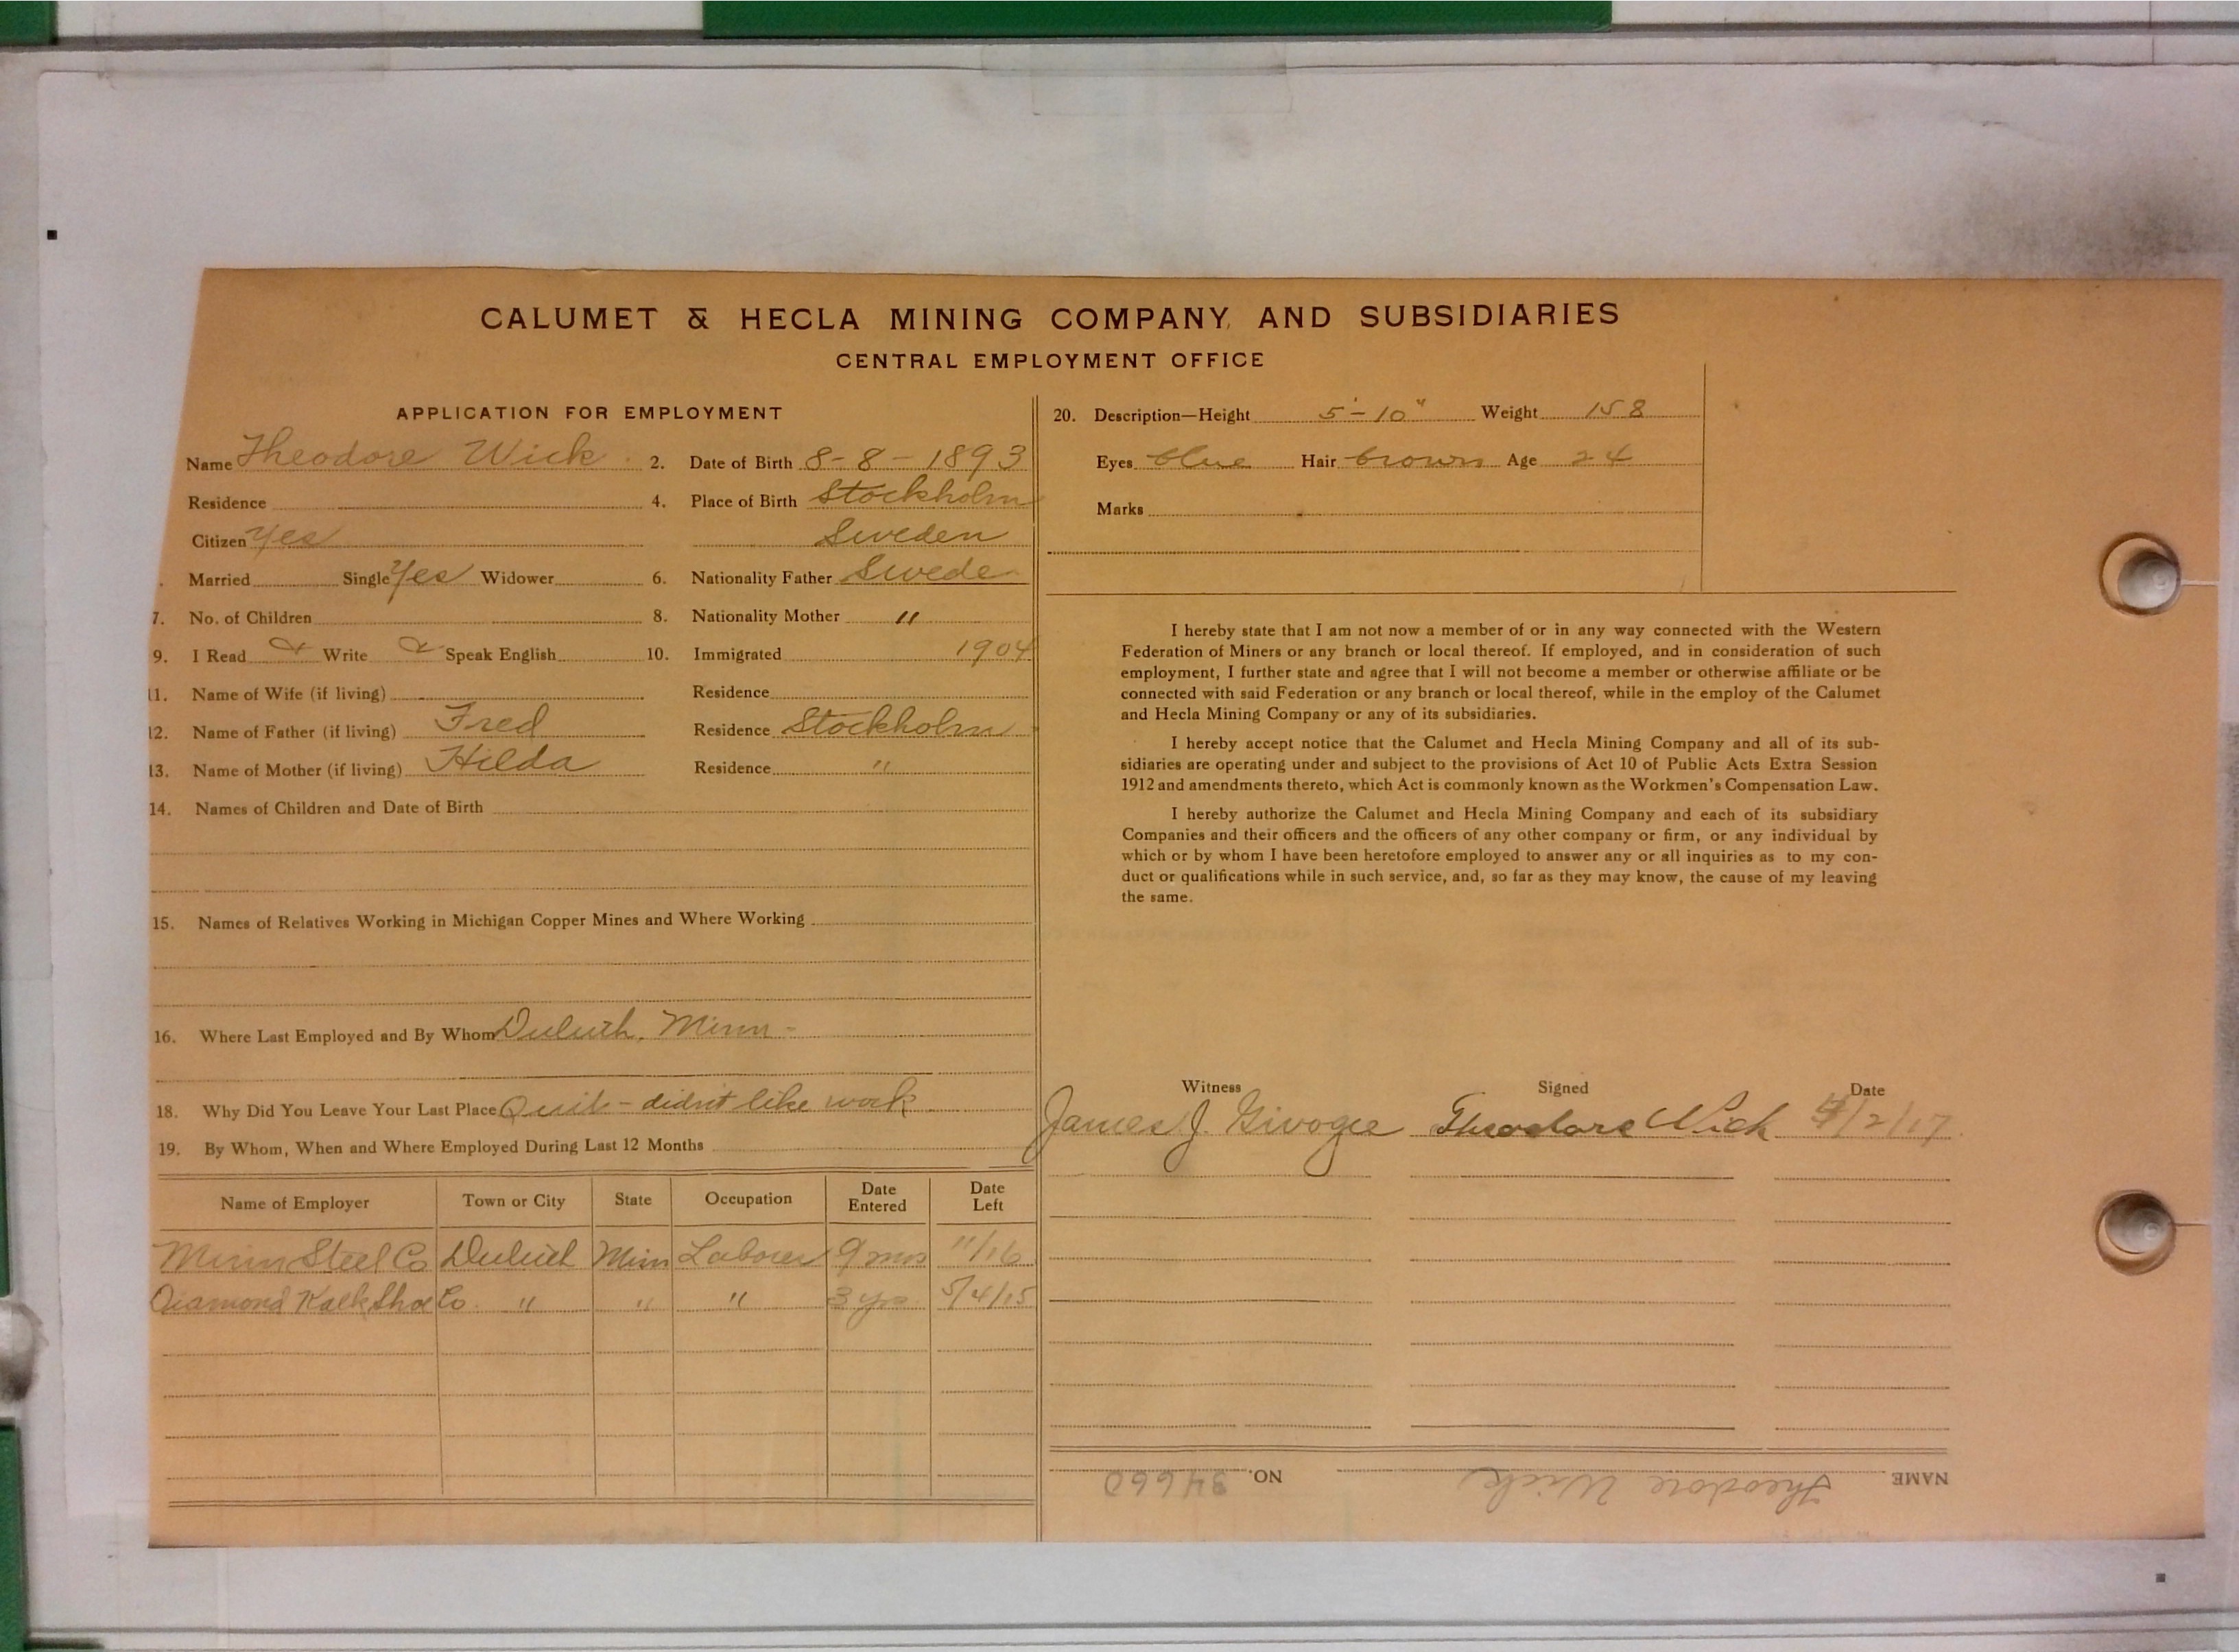 CALUMET & HECLA MINING COMPANY, AND SUBSIDIARIES
CENTRAL EMPLOYMENT OFFICE
APPLICATION FOR EMPLOYMENT
Name Theodore Wick 2. Date of Birth 8-8-1893
Residence 4. Place of Birth Stockholm
Citizen Yes Sweden
Married Single Yes Widower 6. Nationality Father Swede
7. No. of Children 8. Nationality Mother "
9. I Read Write Speak English 10. Immigrated 1904
11. Name of Wife (if living) Residence
12. Name of Father (if living) Fred Residence Stockholm
13. Name of Mother (if living) Hilda Residence "
14. Names of Children and Date of Birth
15. Names of Relatives Working in Michigan Copper Mines and Where Working
16. Where Last Employed and By Whom Duluth, Minn -
18. Why Did You Leave Your Last Place Quit - didn't like work
19. By Whom, When and Where Employed During Last 12 Months
Name of Employer Town or City State Occupation Date Entered Date Left
Minn Steel Co Duluth Minn Laborer 9 mos 11/16
Diamond Kalk Shoe Co. " " " 3 yrs 5/4/15
20. Description—Height 5'-10" Weight 158
Eyes blue Hair brown Age 24
Marks
I hereby state that I am not now a member of or in any way connected with the Western
Federation of Miners or any branch or local thereof. If employed, and in consideration of such
employment, I further state and agree that I will not become a member or otherwise affiliate or be
connected with said Federation or any branch or local thereof, while in the employ of the Calumet
and Hecla Mining Company or any of its subsidiaries.
I hereby accept notice that the Calumet and Hecla Mining Company and all of its sub-
sidiaries are operating under and subject to the provisions of Act 10 of Public Acts Extra Session
1912 and amendments thereto, which Act is commonly known as the Workmen's Compensation Law.
I hereby authorize the Calumet and Hecla Mining Company and each of its subsidiary
Companies and their officers and the officers of any other company or firm, or any individual by
which or by whom I have been heretofore employed to answer any or all inquiries as to my con-
duct or qualifications while in such service, and, so far as they may know, the cause of my leaving
the same.
Witness Signed Date
James J. Theodore Wick /2/17
NAME Theodore Wick NO. 34660